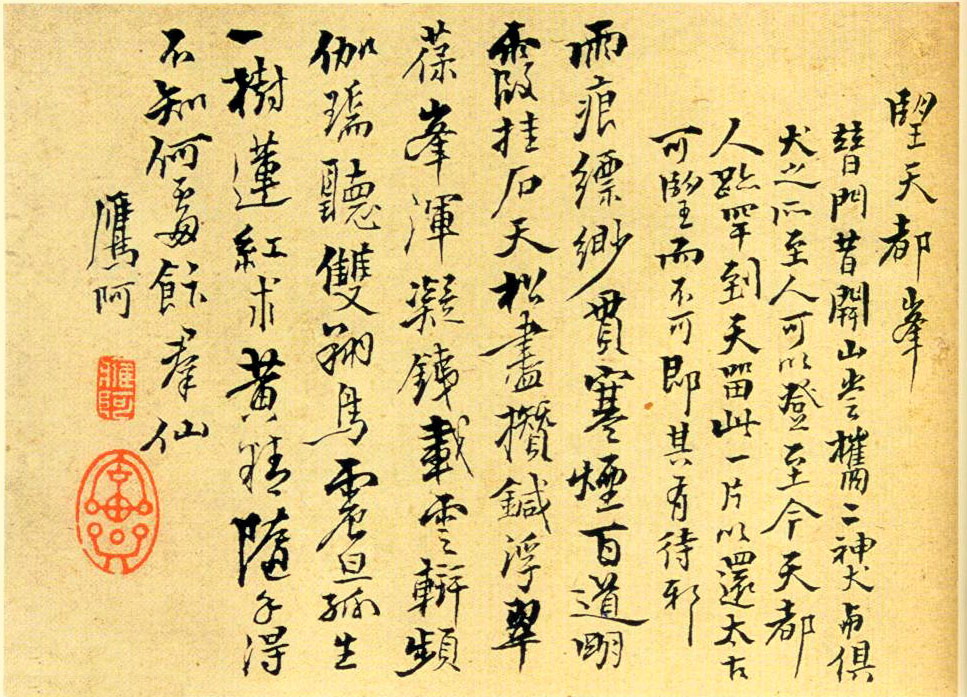 望天都峯
普門昔開山嘗攜二神犬與俱
犬之所至人可以登至今天都
人跡罕到天留此一片以還太古
可望而不可即其有待邪
雨痕縹緲貫寒煙百道明
霞挂石天松盡攢鍼浮翠
葆峯渾凝鐵載雲輧頻
伽瑞聽雙翔鳥震旦孤生
一樹蓮紅朮黃精隨手得
不知何處飯羣仙
鷹阿